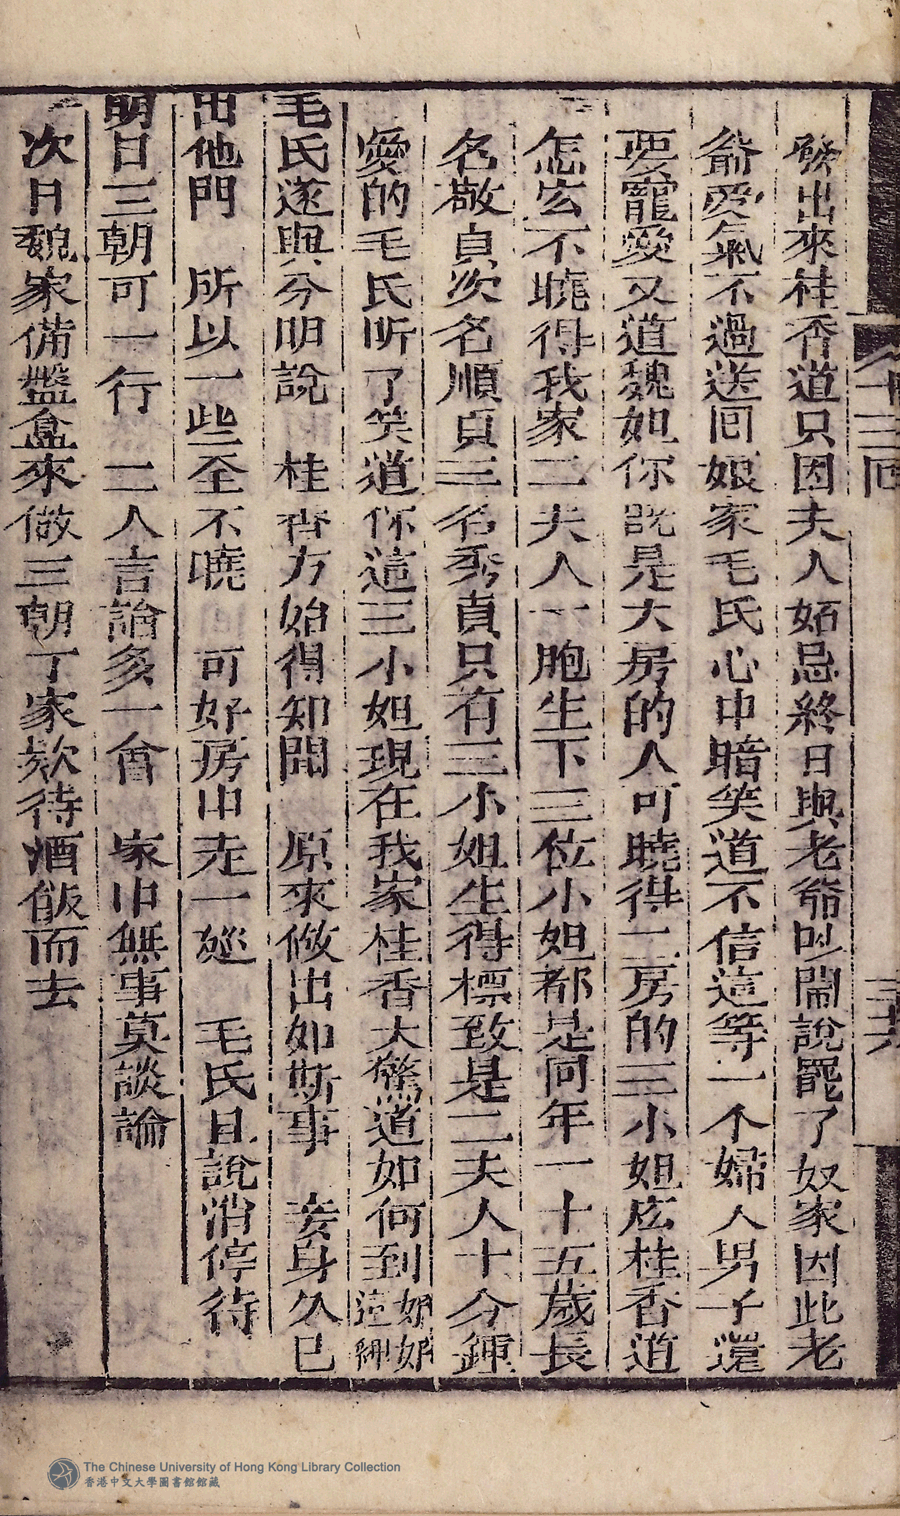 發出來桂香道只因夫人妬忌終日與老爺吵鬧說罷了奴家因此老
爺受氣不過送囘娘家毛氏心中暗笑道不信這等一个婦人男子還
要寵愛又道魏姐你既是大房的人可曉得二房的三小姐庅桂香道
怎庅不曉得我家二夫人一胞生下三位小姐都是同年一十五歲長
名敬貞次名順貞三名秀貞只有三小姐生得標致是二夫人十分鍾
愛的毛氏听了笑道你這三小姐現在我家桂香大驚道如何到這裡
毛氏遂與分明說 桂香方始得知聞 原來做出如斯事 妾身久已
出他門 所以一些全不曉 可好房中走一廵 毛氏且說消停待
明日三朝可一行 二人言論多一會 家中無事莫談論
次日魏家備盤盒來做三朝丁家欵待酒飯而去
十三囘
三十六
The Chinese University of Hong Kong Library Collection
香港中文大學圖書館館藏